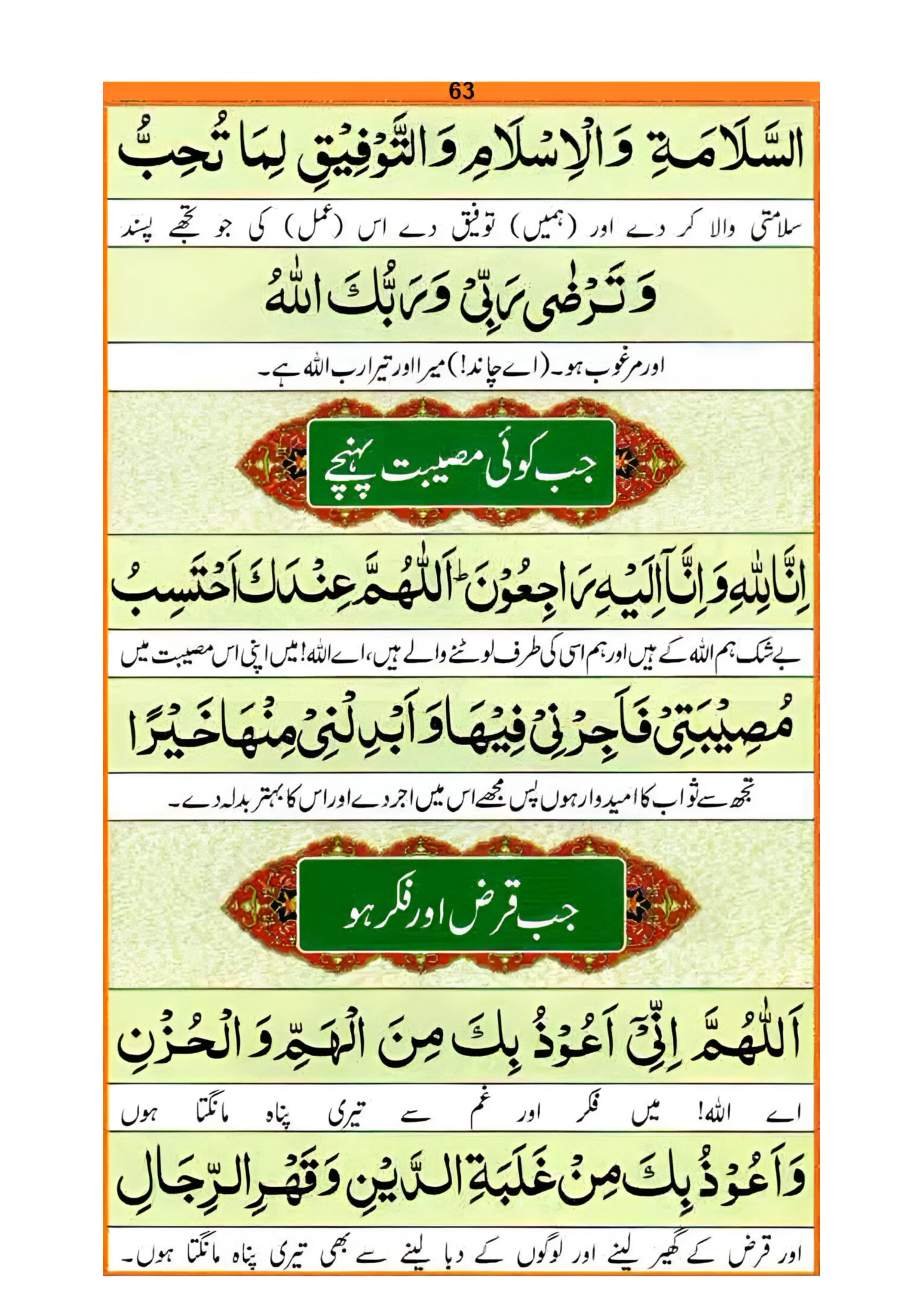 63
السَّلَامَةِ وَالْاِسْلَامِ وَالتَّوْفِيْقِ لِمَا تُحِبُّ
سلامتی والا کر دے اور (ہمیں) توفیق دے اس (عمل) کی جو تجھے پسند
وَتَرْضٰى رَبِّىْ وَرَبُّكَ اللّٰهُ
اور مرغوب ہو۔ (اے چاند!) میرا اور تیرا رب اللہ ہے۔
جب کوئی مصیبت پہنچے
اِنَّا لِلّٰهِ وَاِنَّآ اِلَيْهِ رَاجِعُوْنَ ؕ اَللّٰهُمَّ عِنْدَكَ اَحْتَسِبُ
بے شک ہم اللہ کے ہیں اور ہم اسی کی طرف لوٹنے والے ہیں، اے اللہ! میں اپنی اس مصیبت میں
مُصِيْبَتِىْ فَاَجِرْنِىْ فِيْهَا وَاَبْدِلْنِىْ مِنْهَا خَيْرًا
تجھ سے ثواب کا امیدوار ہوں پس مجھے اس میں اجر دے اور اس کا بہتر بدلہ دے۔
جب قرض اور فکر ہو
اَللّٰهُمَّ اِنِّىْٓ اَعُوْذُ بِكَ مِنَ الْهَمِّ وَالْحُزْنِ
اے اللہ! میں فکر اور غم سے تیری پناہ مانگتا ہوں
وَاَعُوْذُ بِكَ مِنْ غَلَبَةِ الدَّيْنِ وَقَهْرِ الرِّجَالِ
اور قرض کے گھیر لینے اور لوگوں کے دبا لینے سے بھی تیری پناہ مانگتا ہوں۔